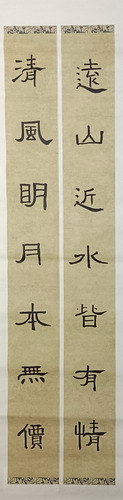 遠山近水皆有情
清風明月本無價